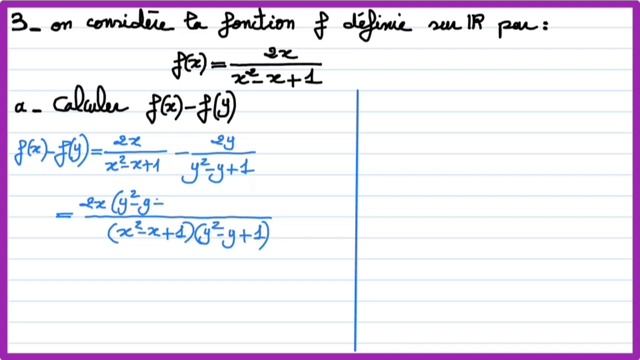 3- on considère la fonction f définie sur IR par :
f(x) = 2x / (x² - x + 1)
a - Calculer f(x) - f(y)
f(x) - f(y) = 2x / (x² - x + 1) - 2y / (y² - y + 1)
= 2x (y² - y = / (x² - x + 1)(y² - y + 1)